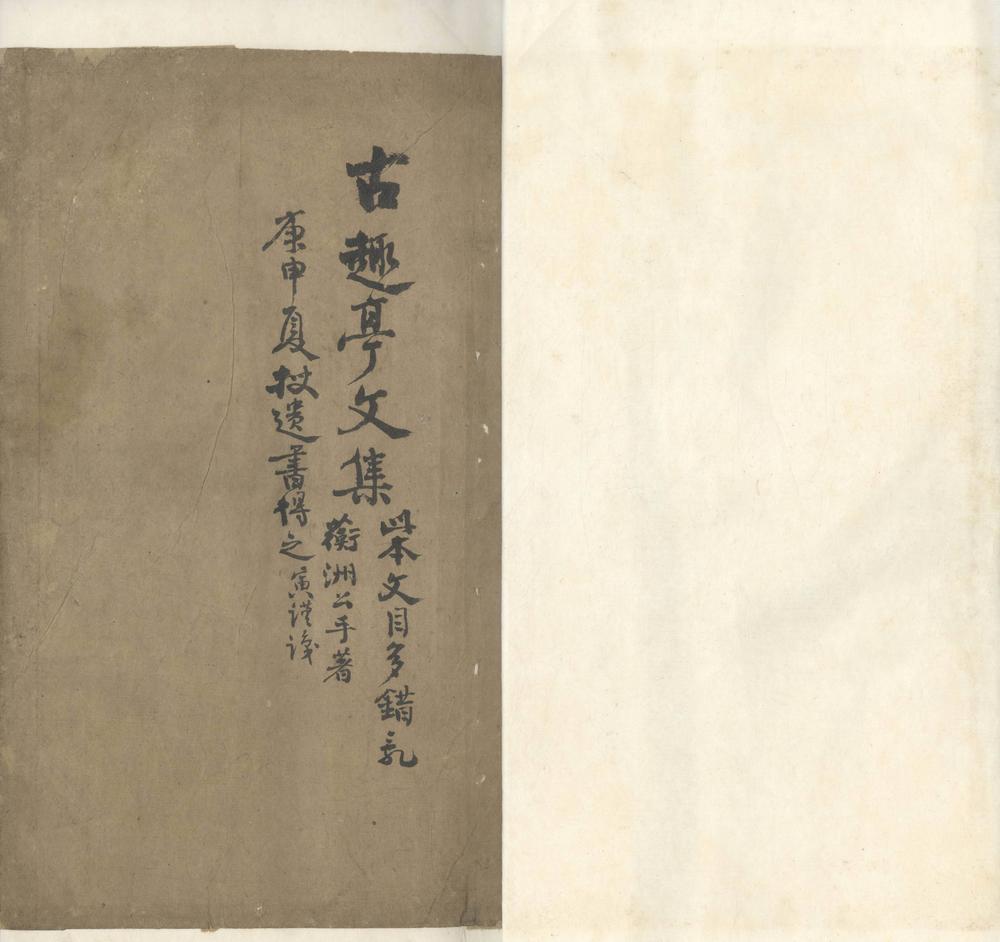 古趣亭文集
此本文目多錯亂
蘅洲公手著
庚申夏遺書得之寅謹識